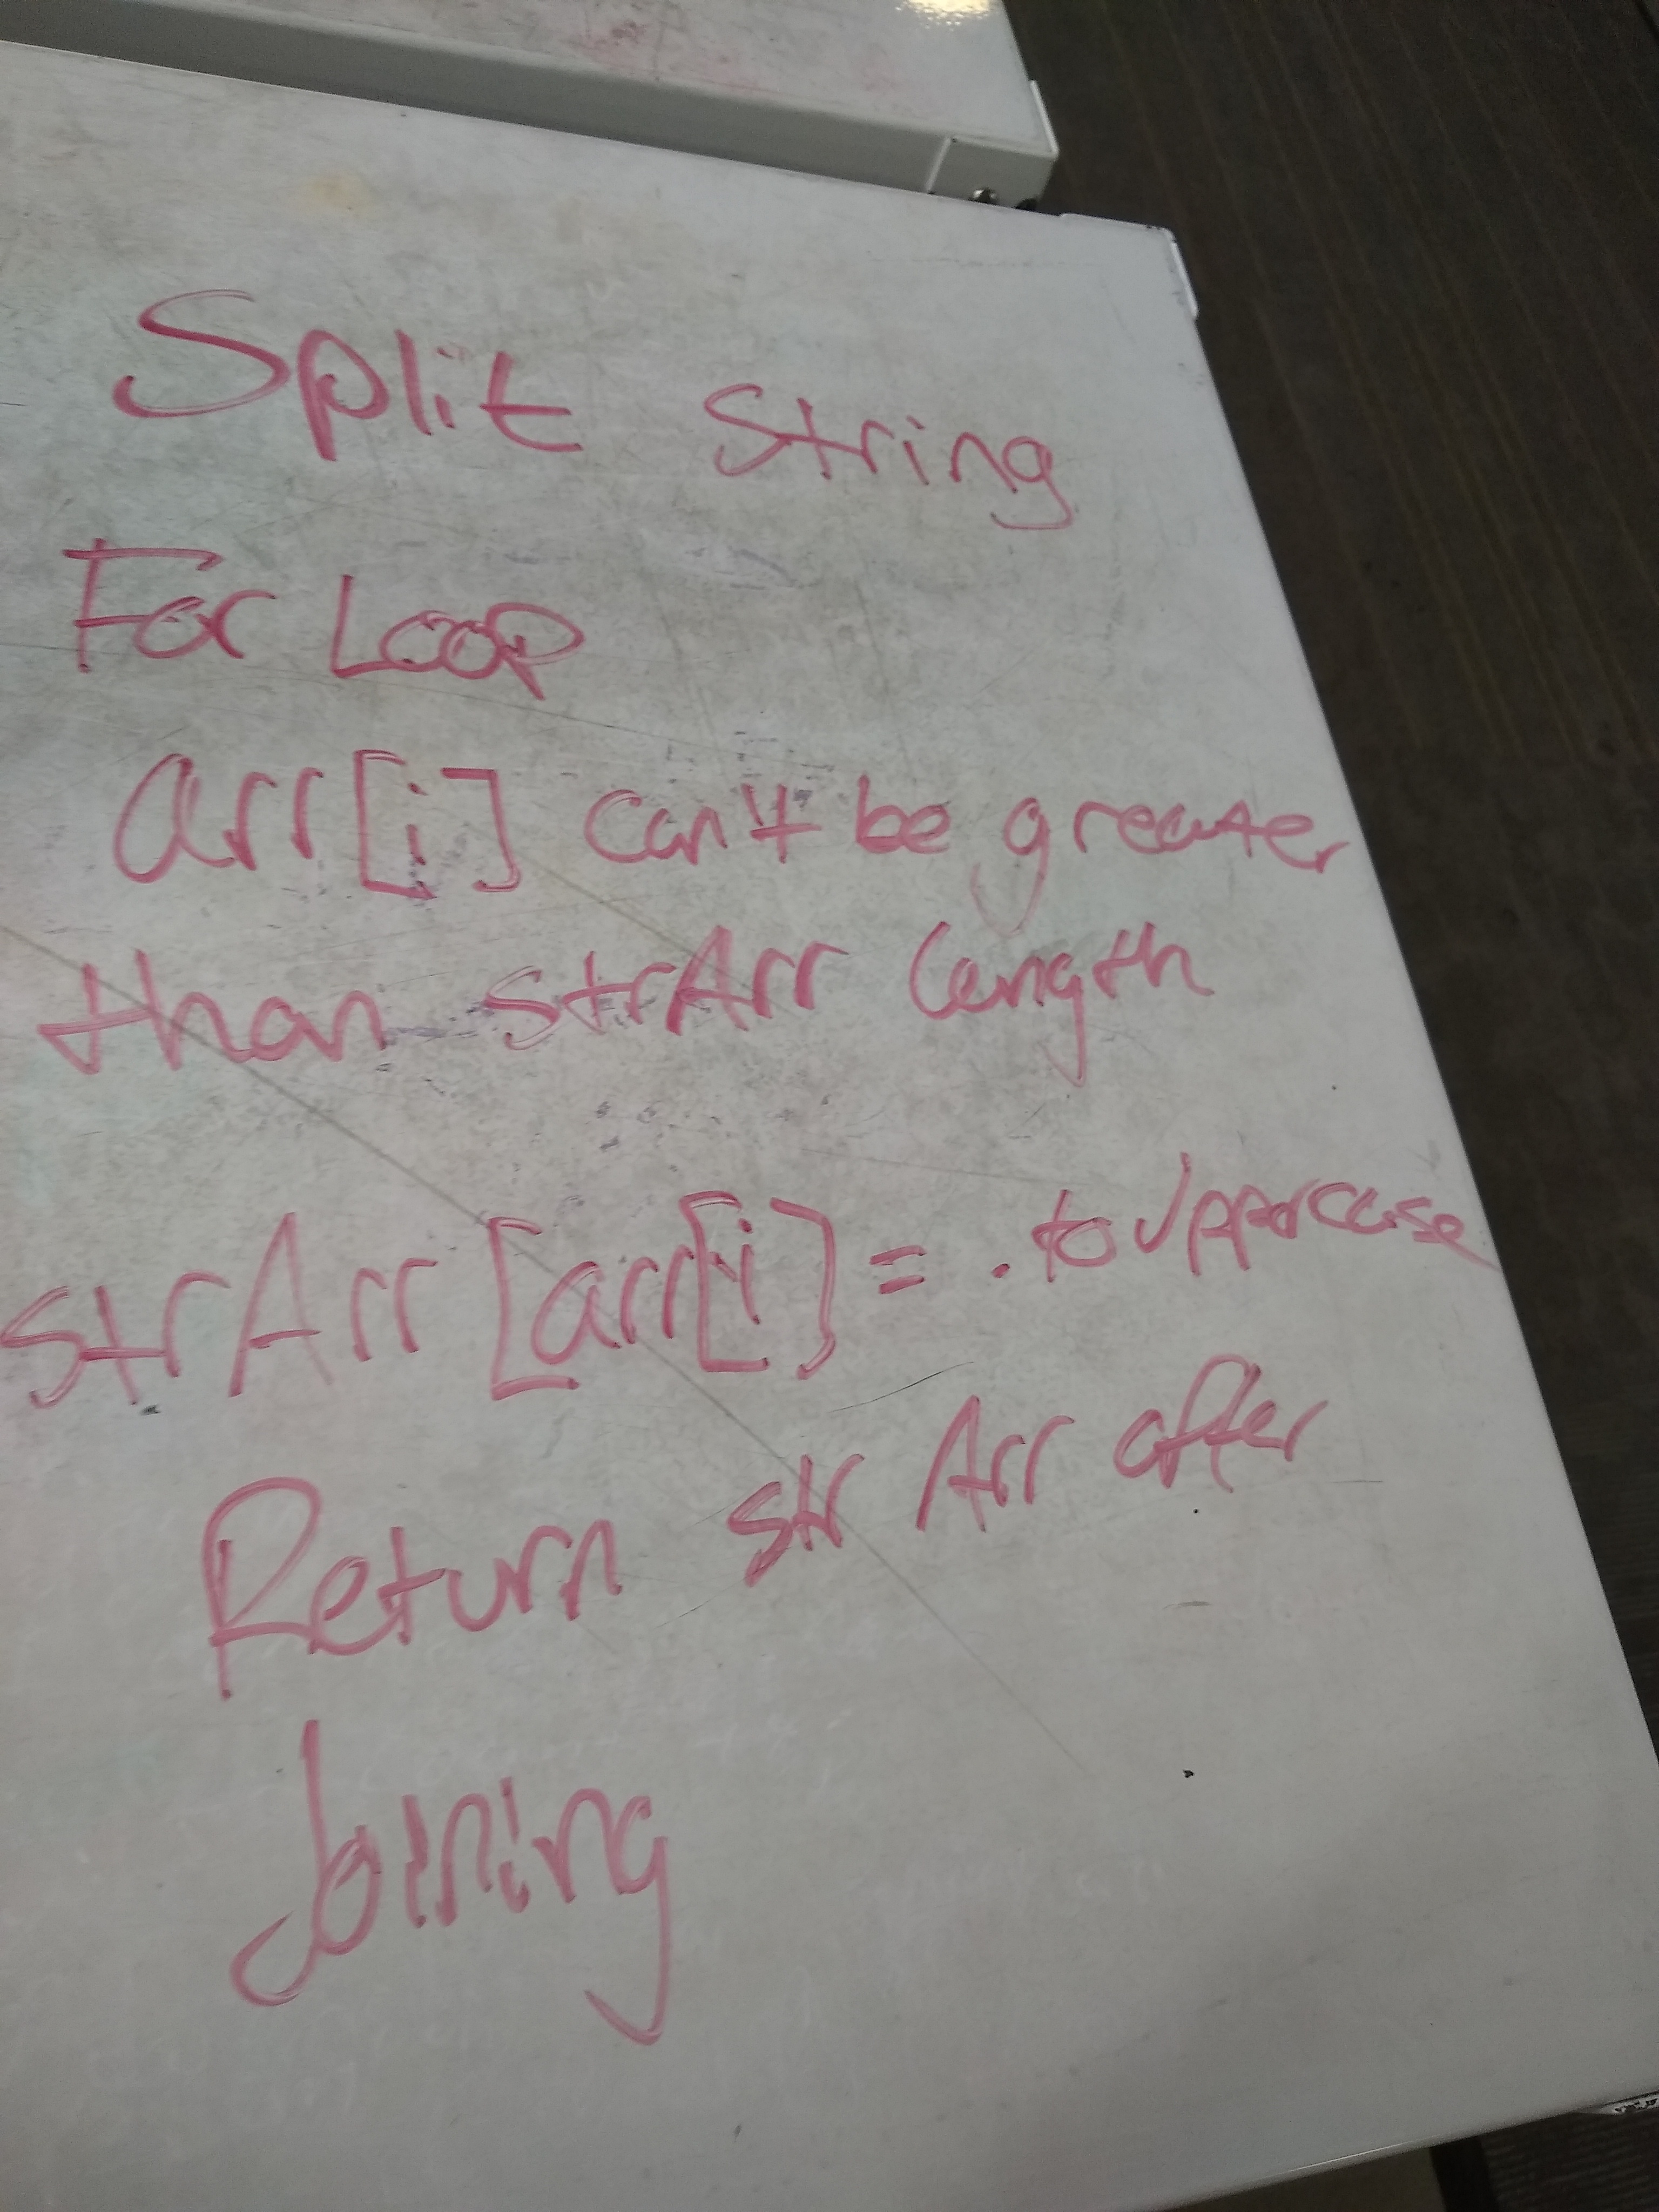 Split String
For Loop
arr[i] can't be greater
than strArr length
strArr[arr[i] = .toUppercase
Return strArr after
Joining